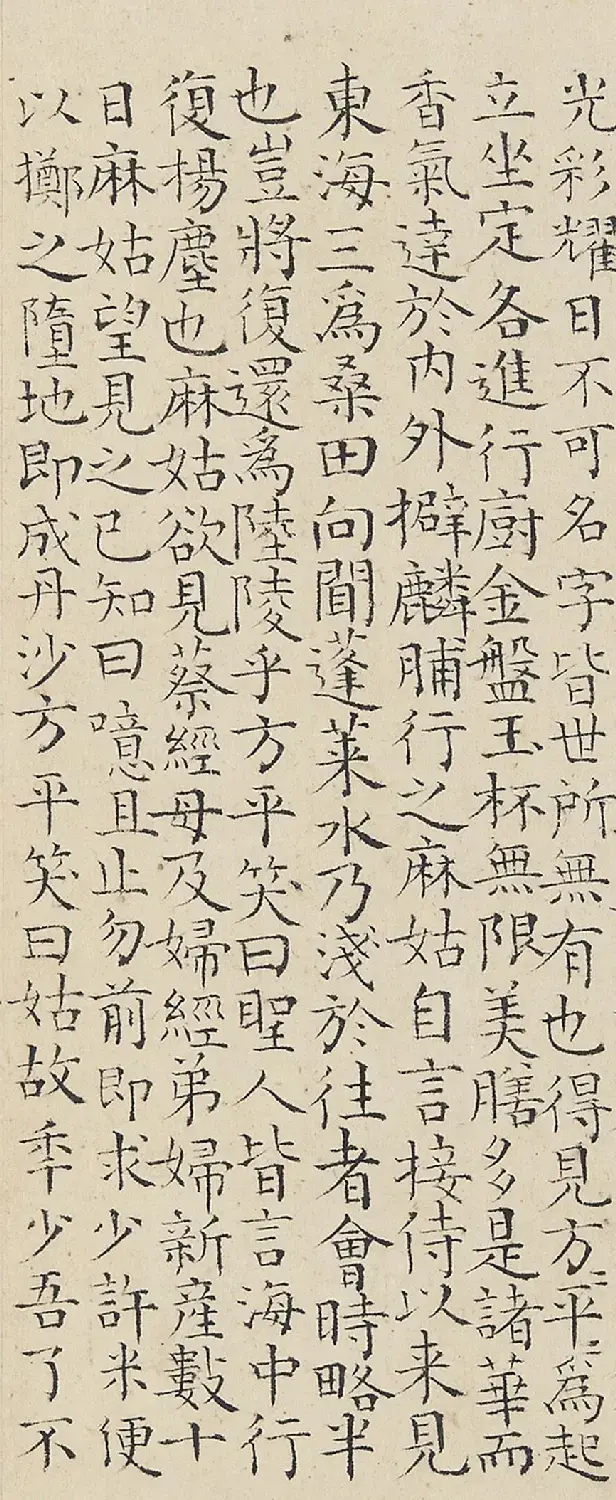 光彩耀日不可名字皆世所無有也得見方〻平〻爲起
立坐定各進行廚金盤玉杯無限美膳多是諸華而
香氣達於内外擗麟脯行之麻姑自言接侍以来見
東海三爲桑田向間蓬莱水乃淺於往者會時略半
也豈將復還爲陸陵乎方平笑曰聖人皆言海中行
復揚塵也麻姑欲見蔡經母及婦經弟婦新産數十
日麻姑望見之已知曰噫且止勿前即求少許米便
以擲之墮地即成丹沙方平笑曰姑故年少吾了不